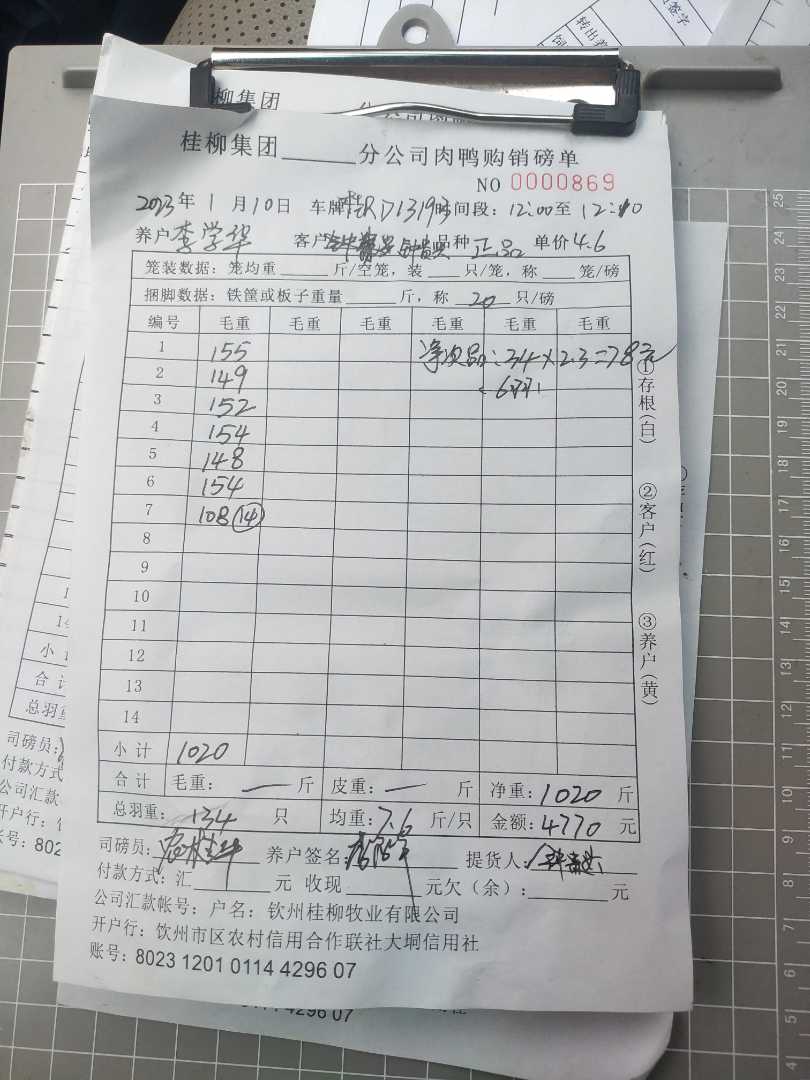 桂柳集团______分公司肉鸭购销磅单
NO 0000869
2023年1月10日 车牌 D1319 时间段：12:00至12:10
养户 李学华 客户 品种 正品 单价4.6
笼装数据：笼均重______斤/空笼，装____只/笼，称____笼/磅
捆脚数据：铁筐或板子重量______斤，称 20 只/磅
编号 毛重 毛重 毛重 毛重 毛重 毛重
1 155 净次品：34×2.3=78元
2 149 (6羽)
3 152
4 154
5 148
6 154
7 108 (14)
8
9
10
11
12
13
14
小计 1020
合计 毛重：— 斤 皮重：— 斤 净重：1020 斤
总羽重：134 只 均重：7.6 斤/只 金额：4770 元
司磅员： 养户签名： 提货人：
付款方式：汇________元 收现________元欠（余）：________元
公司汇款帐号：户名：钦州桂柳牧业有限公司
开户行：饮州市区农村信用合作联社大垌信用社
账号：8023 1201 0114 4296 07
①存根(白)
②客户(红)
③养户(黄)
柳集团
14
小
合 计
总羽重
司磅员：
付款方式
公司汇款
开户行：
账号：802
0114 4296 07
签字
转出
25
21
20
19
18
17
16
15
14
13
12
11
10
9
8
7
6
5
4